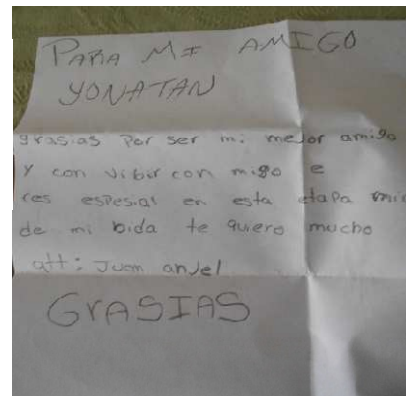 PARA MI AMIGO
YONATAN
grasias Por ser mi mejor amigo
y con vibir con migo e
res espesial en esta etapa mia
de mi bida te quiero mucho
att: Juan anJel
GrASIAS